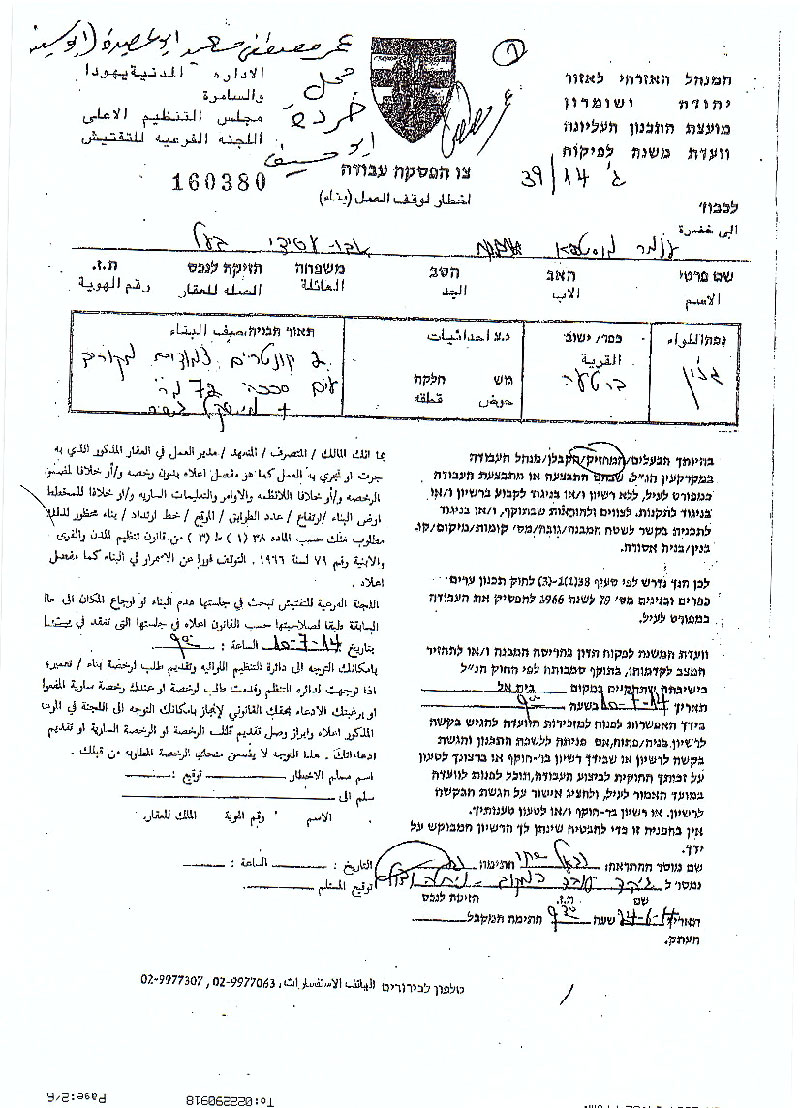 עמר مصطفى سعيد ابو
الادارة المدنية يهودا
والسامرة
مجلس التنظيم الاعلى
اللجنه الفرعيه للتفتيش
محل
خردة
160380
המנהל האזרחי לאזור
יהודה ושומרון
מועצת התכנון העליונה
וועדת משנה לפיקוח
צו הפסקת עבודה
اخطار لوقف العمل (بناء)
ג' 39/14
לכבוד
الى حضرة
שם פרטי האב הסב משפחה הזיקה לנכס ת.ז.
الاسم الاب الجد العائلة الصله للعقار رقم الهوية
נפה/לواء
ג'נין
כפר/ישוב
القرية
ברטעה
נ.צ احداثيات
גוש חלקה
حوض قطعة
תאור הבניה/صيف البناء
2 קונטיינרים
72 מ"ר
בהיותך הבעלים/המחזיק/הקבלן/מנהל העבודה
במקרקעין הנ"ל שבהם התבצעה או מתבצעת העבודה
כמפורט לעיל, ללא רשיון ו/או בניגוד לקבוע ברשיון ו/או
בניגוד לתקנות, לצווים ולהוראות שבתוקף, ו/או בניגוד
לתכנית בקשר לשטח המבנה/גובה/מס' קומות/מיקום/קו
בנין/בניה אסורה.
לכן הנך נדרש לפי סעיף 38(1)-(3) לחוק תכנון ערים
כפרים ובנינים מס' 79 לשנת 1966 להפסיק את העבודה
כמפורט לעיל.
וועדת המשנה לפקוח תדון בהריסת המבנה ו/או להחזיר
המצב לקדמותו, בתוקף סמכותה לפי החוק הנ"ל
בישיבתה שתתקיים במקום בית אל
תאריך 10-7-14 בשעה 9:00
בידך האפשרות לפנות למזכירות הוועדה להגיש בקשה
לרשיון בניה/פתוח, אם פניתה ללשכת התכנון והגשת
בקשה לרשיון או שבידך רשיון בר-תוקף או ברצונך לטעון
על זכותך החוקית לביצוע העבודה, תוכל לפנות לוועדה
במועד האמור לעיל, ולהציג אישור על הגשת הבקשה
לרשיון, או רשיון בר-תוקף ו/או לטעון טענותיך.
אין בהפניה זו כדי להבטיח שינתן לך הרשיון המבוקש על
ידך.
שם מוסר ההתראה: חתימה
נמסר ל
שם ת.ז. הזיקה לנכס
תאריך 24-6-14 שעה 9:30 חתימת המקבל
העתק.
بما انك المالك / المتصرف / المتعهد / مدير العمل في العقار المذكور الذي به
جرت او تجري به العمل كما هو مفصل اعلاه بدون رخصه و/أو خلافا لمضمون
الرخصه و/أو خلافا للانظمه والاوامر والتعليمات الساريه و/او خلافا للمخطط
ارض البناء /ارتفاع / عدد الطوابق / الموقع / خط ارتداد / بناء محظور لذلك
مطلوب منك حسب الماده ٣٨ (١) ط (٣) من قانون تنظيم المدن والقرى
والابنية رقم ٧٩ لسنة ١٩٦٦ . التوقف فورا عن الاستمرار في البناء كما مفصل
اعلاه .
اللجنه الفرعية للتفتيش تبحث في جلستها هدم البناء او ارجاع المكان الى حالته
السابقة طبقا لصلاحيتها حسب القانون اعلاه في جلستها التى تنعقد في
بتاريخ 10-7-14 الساعة : 9:00
بامكانك التوجه الى دائرة التنظيم اللوائيه وتقديم طلب لرخصة بناء / تعمير؛
اذا توجهت لدائره التنظيم وقدمت طلب لرخصة او عندك رخصة سارية المفعول
او برغبتك الادعاء بحقك القانوني لإنجاز بامكانك التوجه الى اللجنة في الموعد
المذكور اعلاه وابراز وصل تقديم طلب الرخصة او الرخصة السارية او تقديم
ادعاءاتك . هذا التوجه لا يضمن منحك الرخصة المطلوبه من قبلك .
اسم مسلم الاخطار توقيع :
سلم الى
الاسم رقم الهوية المالك للعقار
التاريخ : الساعة :
توقيع المستلم
טלפון לבירורים الهاتف الاستفسارات: 02-9977063, 02-9977307
To:022290918
Page:2/6